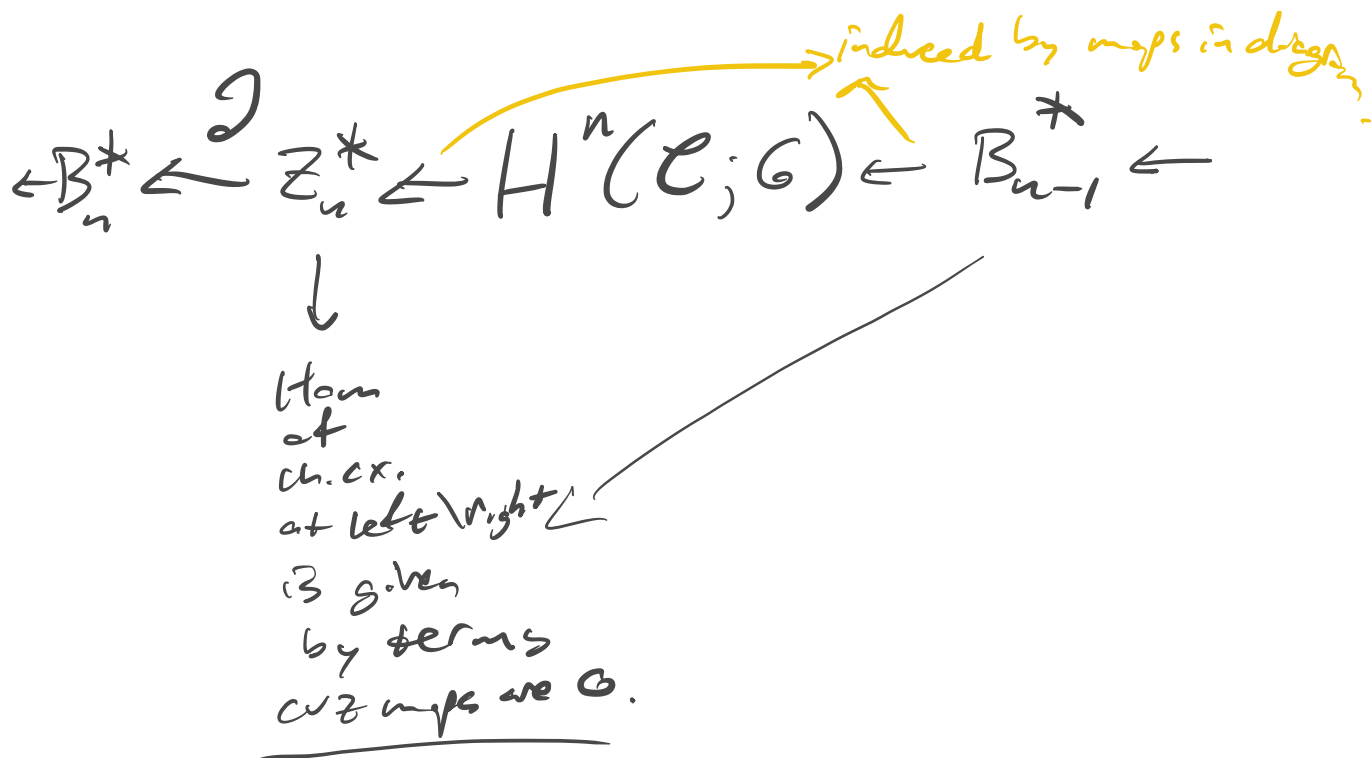 induced by maps in diagram.
∂
← B_n^* ← Z_n^* ← H^n(C; G) ← B_{n-1}^* ←
Hom
of
ch. cx.
at left \ right
is given
by terms
cuz maps are 0.